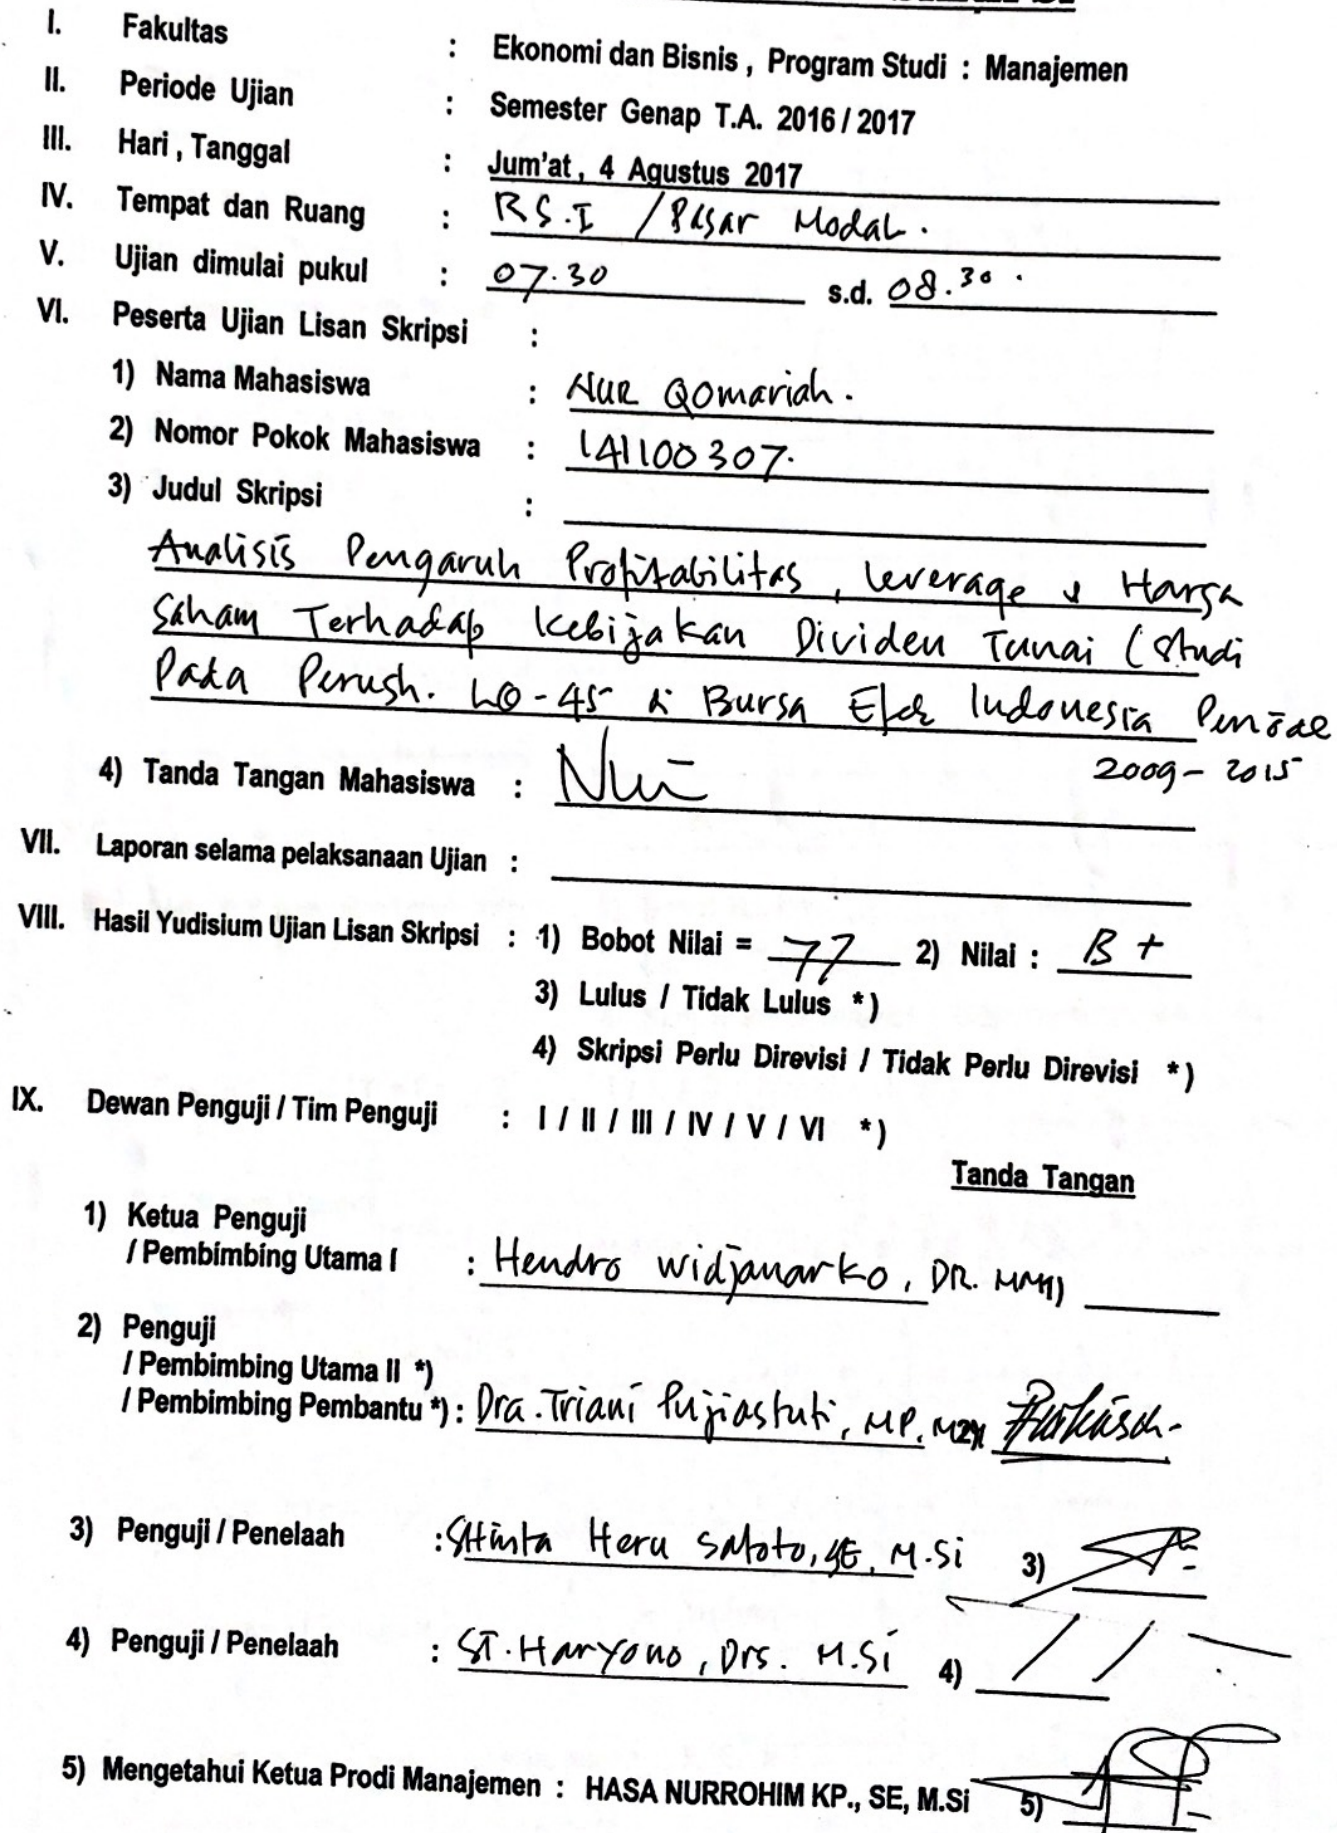 I. Fakultas : Ekonomi dan Bisnis , Program Studi : Manajemen
II. Periode Ujian : Semester Genap T.A. 2016 / 2017
III. Hari , Tanggal : Jum'at , 4 Agustus 2017
IV. Tempat dan Ruang : RS.I / Pasar Modal.
V. Ujian dimulai pukul : 07.30 s.d. 08.30.
VI. Peserta Ujian Lisan Skripsi :
1) Nama Mahasiswa : NUR Qomariah.
2) Nomor Pokok Mahasiswa : 141100307.
3) Judul Skripsi :
Analisis Pengaruh Profitabilitas, Leverage & Harga
Saham Terhadap Kebijakan Dividen Tunai (Studi
Pada Perush. LQ-45 di Bursa Efek Indonesia Periode
2009 - 2015
4) Tanda Tangan Mahasiswa :
VII. Laporan selama pelaksanaan Ujian :
VIII. Hasil Yudisium Ujian Lisan Skripsi : 1) Bobot Nilai = 77 2) Nilai : B +
3) Lulus / Tidak Lulus *)
4) Skripsi Perlu Direvisi / Tidak Perlu Direvisi *)
IX. Dewan Penguji / Tim Penguji : I / II / III / IV / V / VI *)
Tanda Tangan
1) Ketua Penguji
/ Pembimbing Utama I : Hendro Widjanarko, DR. MM 1)
2) Penguji
/ Pembimbing Utama II *)
/ Pembimbing Pembantu *) : Dra. Triani Pujiastuti, MP. 2)
3) Penguji / Penelaah : SHinta Heru Satoto, SE, M.Si 3)
4) Penguji / Penelaah : ST. Haryono, Drs. M.Si 4)
5) Mengetahui Ketua Prodi Manajemen : HASA NURROHIM KP., SE, M.Si 5)